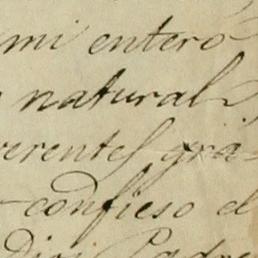 mi entero
natural
verentes gra-
confieso el
Dios Padre